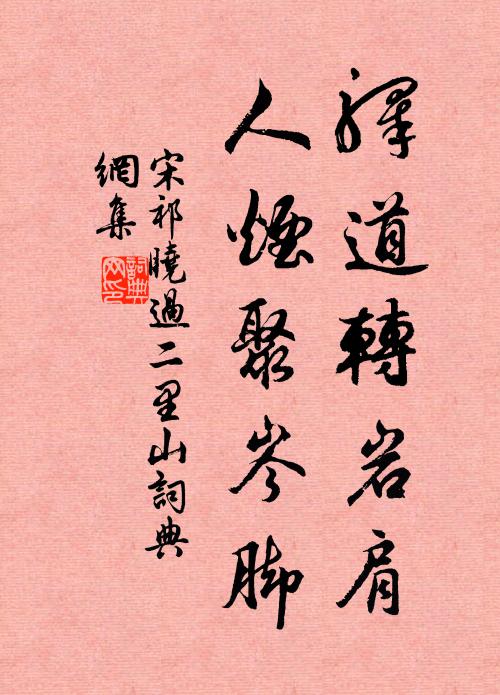 驛道轉岩肩
人煙聚岑脚
宋祁曉過二里山詞典
網集
詞典网印